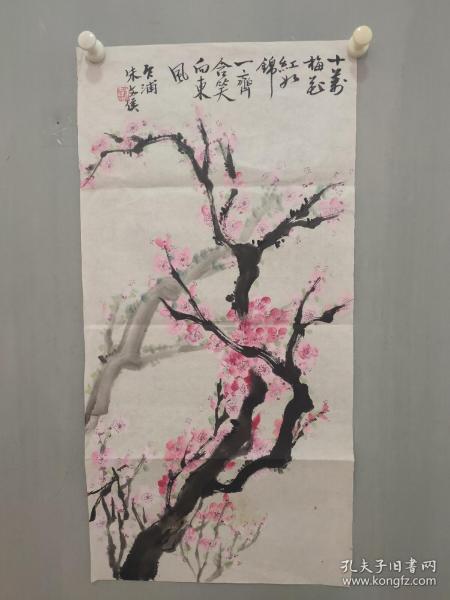 十萬
梅花
紅如
錦
一齊
含笑
向東
風
朱文侯
孔夫子旧书网
www.kongfz.com